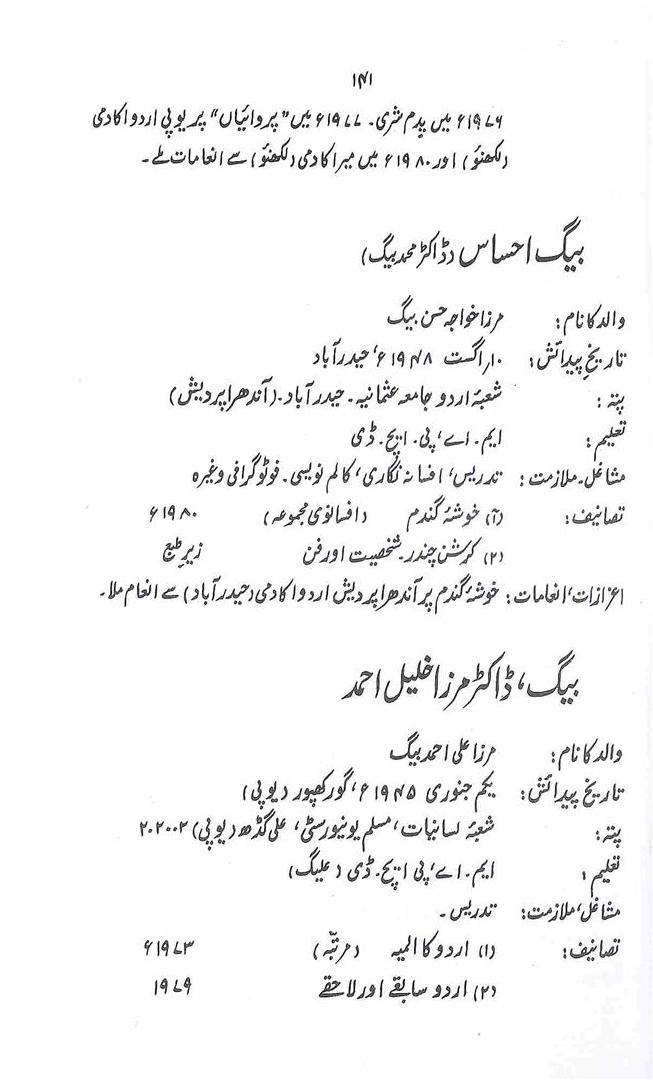 ۱۴۱
۱۹۷۶ء میں پدم شری۔ ۱۹۷۷ء میں "پروائیاں" پر یوپی اردو اکادمی
(لکھنؤ) اور ۱۹۸۰ء میں میر اکادمی (لکھنؤ) سے انعامات ملے۔
بیگ احساس (ڈاکٹر محمد بیگ)
والد کا نام: مرزا خواجہ حسن بیگ
تاریخ پیدائش: ۱۰؍اگست ۱۹۴۸ء، حیدرآباد
پتہ: شعبۂ اردو جامعہ عثمانیہ۔ حیدرآباد۔ (آندھرا پردیش)
تعلیم: ایم۔ اے، پی۔ ایچ۔ ڈی
مشاغل۔ملازمت: تدریس، افسانہ نگاری، کالم نویسی۔ فوٹوگرافی وغیرہ
تصانیف: (۱) خوشۂ گندم (افسانوی مجموعہ) ۱۹۸۰ء
(۲) کرشن چندر۔شخصیت اور فن زیر طبع
اعزازات، انعامات: خوشۂ گندم پر آندھرا پردیش اردو اکادمی (حیدرآباد) سے انعام ملا۔
بیگ، ڈاکٹر مرزا خلیل احمد
والد کا نام: مرزا علی احمد بیگ
تاریخ پیدائش: یکم جنوری ۱۹۴۵ء، گورکھپور (یوپی)
پتہ: شعبۂ لسانیات، مسلم یونیورسٹی، علی گڈھ (یوپی) ۲۰۲۰۰۲
تعلیم: ایم۔ اے، پی ایچ۔ ڈی (علیگ)
مشاغل، ملازمت: تدریس۔
تصانیف: (۱) اردو کا المیہ (مرتبہ) ۱۹۷۳ء
(۲) اردو سابقے اور لاحقے ۱۹۷۹